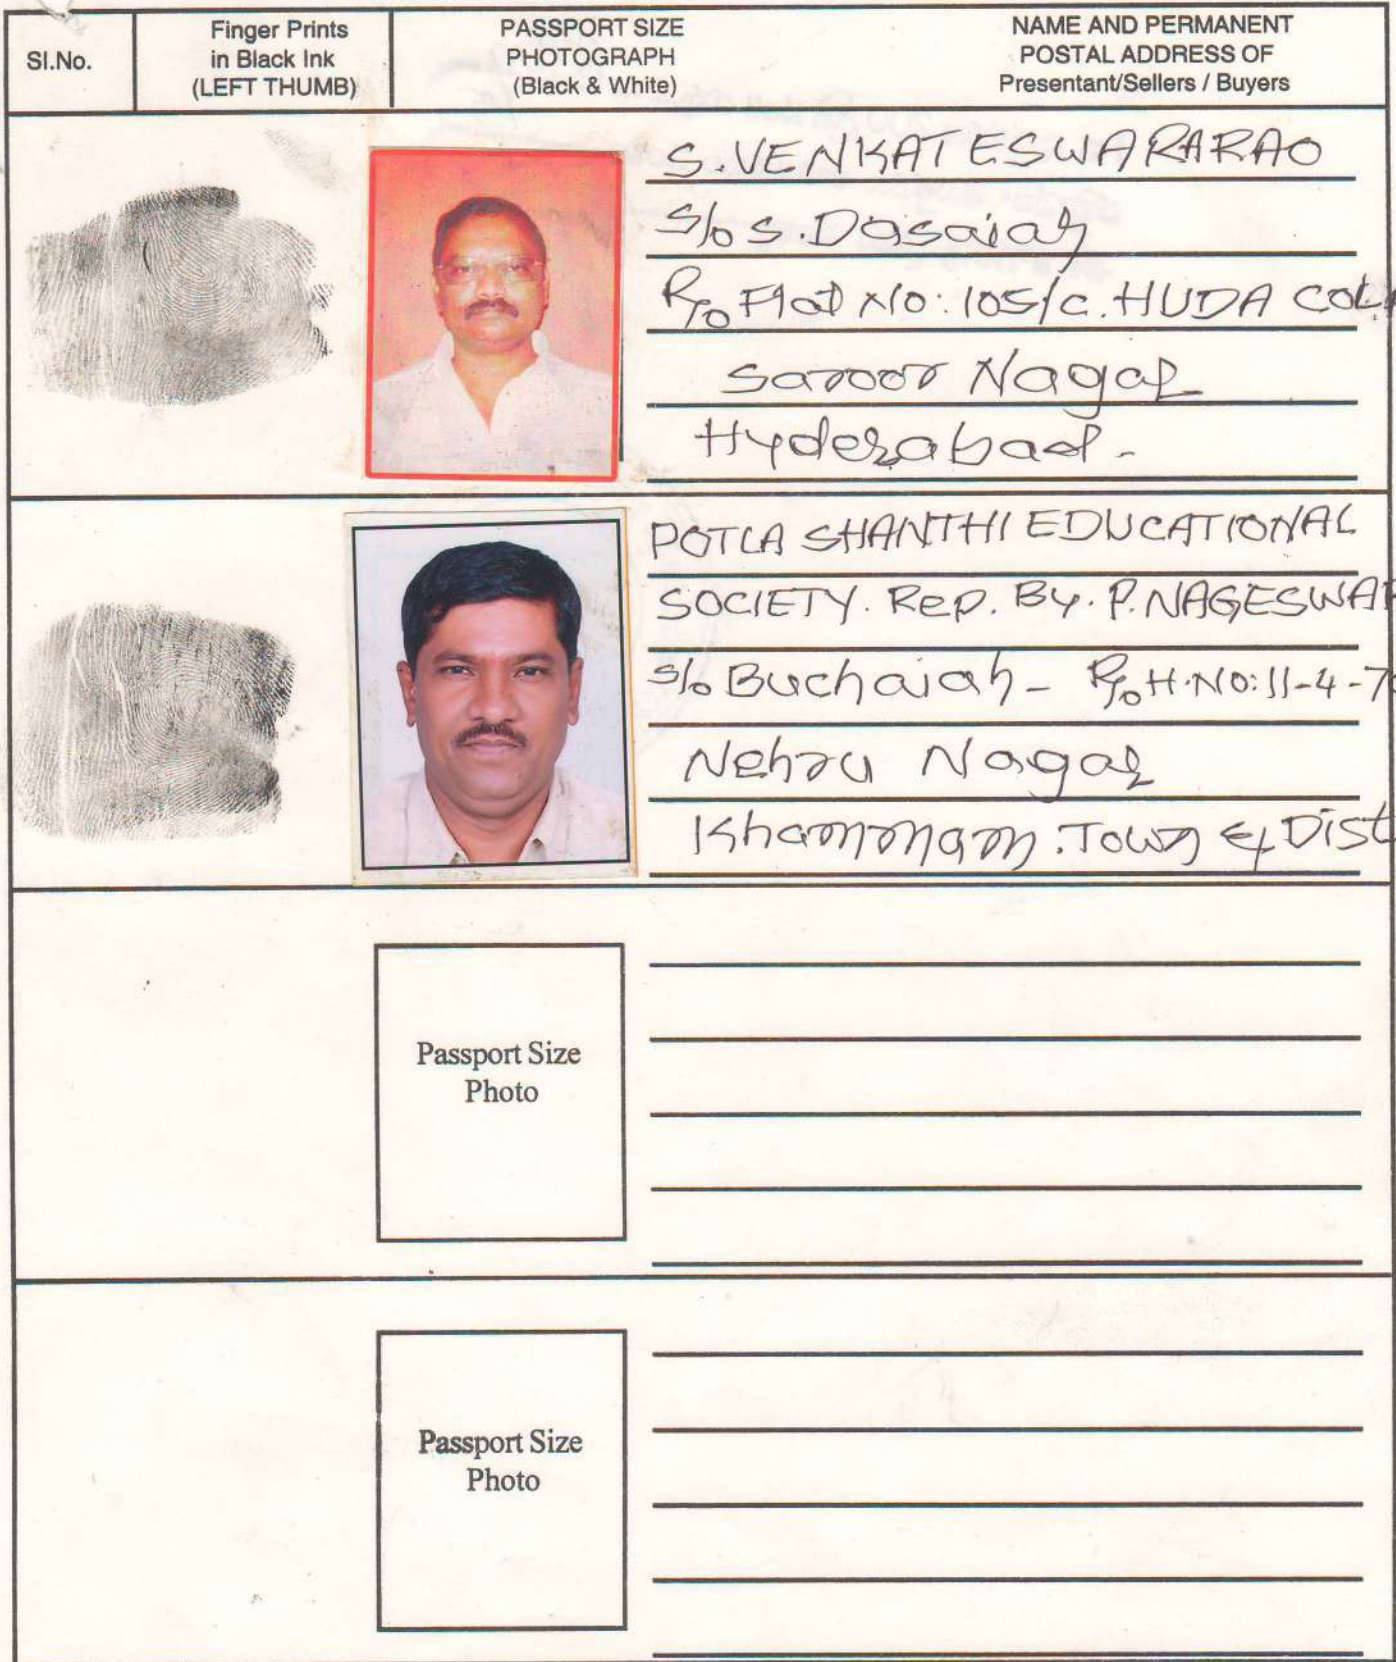 Sl.No.
Finger Prints
in Black Ink
(LEFT THUMB)
PASSPORT SIZE
PHOTOGRAPH
(Black & White)
NAME AND PERMANENT
POSTAL ADDRESS OF
Presentant/Sellers / Buyers
S. VENKATESWARARAO
S/o S. Dasaiah
R/o Flat No: 105/C. HUDA COL
Saroor Nagar
Hyderabad.
POTLA SHANTHI EDUCATIONAL
SOCIETY. Rep. By. P. NAGESWAR
S/o Buchaiah - R/o H.No: 11-4-7
Nehru Nagar
Khammam. Town & Dist
Passport Size
Photo
Passport Size
Photo